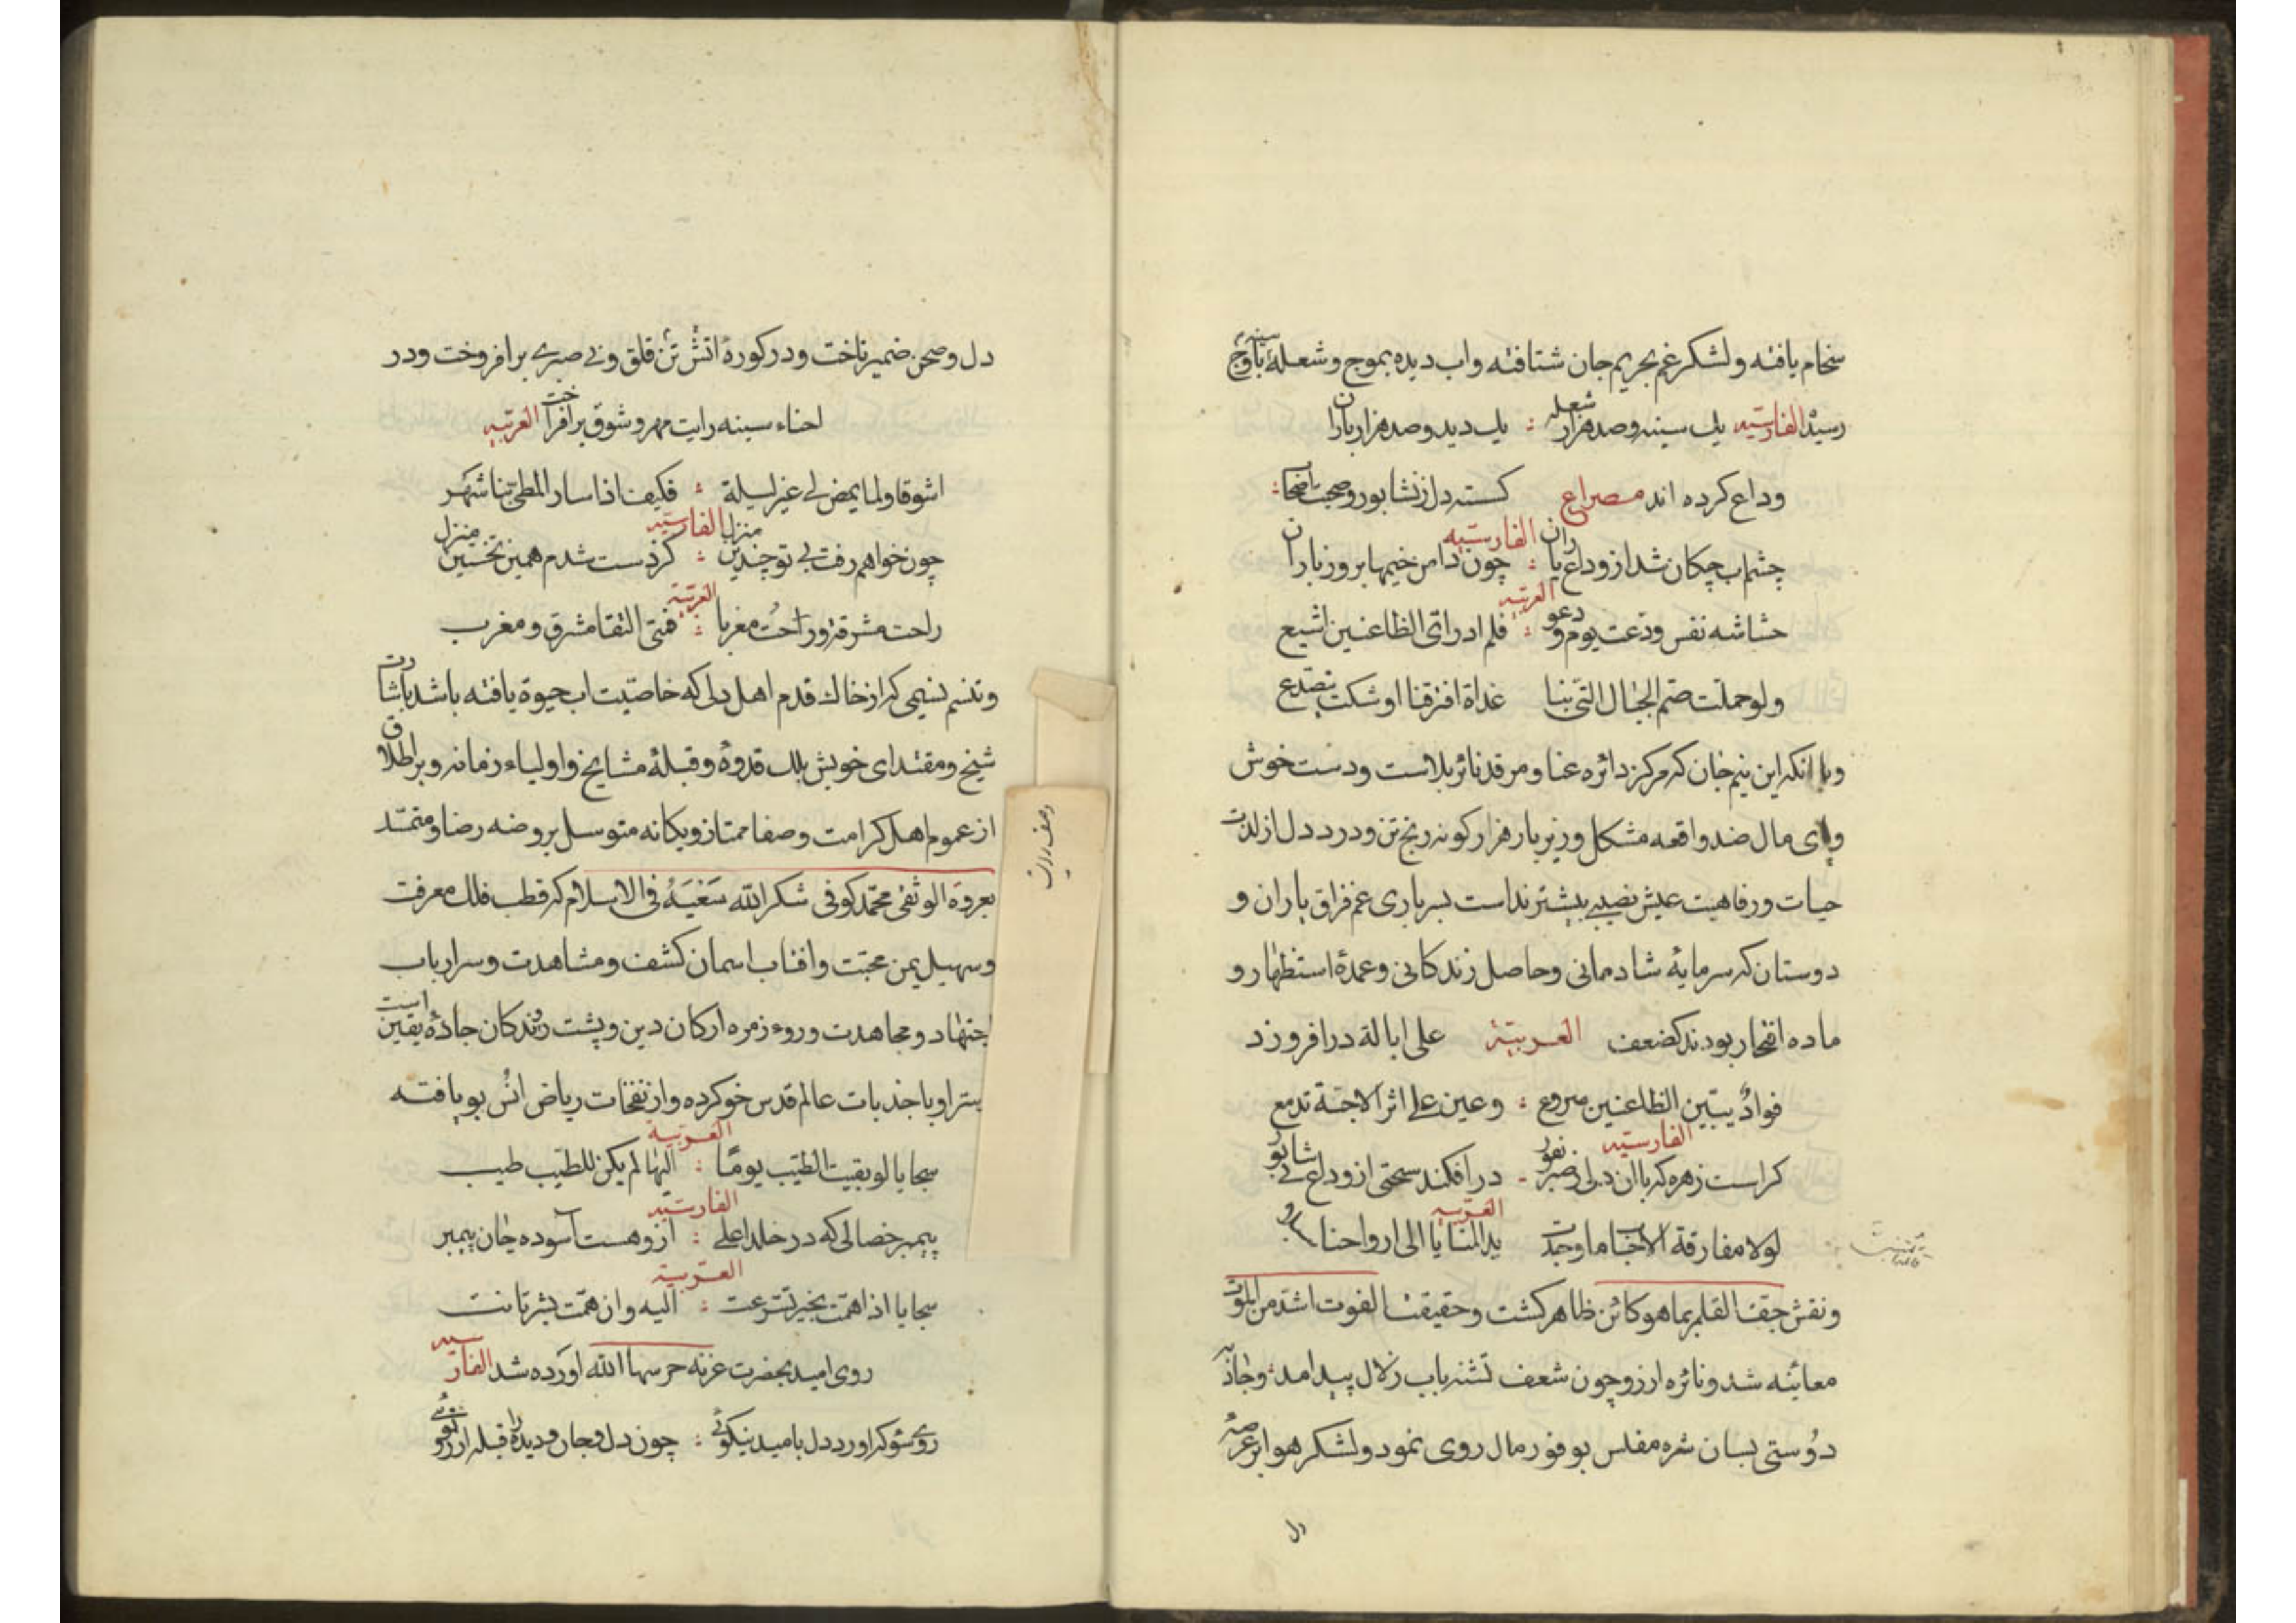 سخام یافته ولشکر غم بحریم جان شتافته واب دیده بموج وشعلهٔ سینه باوج
رسید الفارسیته یك سینه وصد هزار شعله : یك دیده وصد هزار باران
وداع کرده اند مصراع کسسته دل از نشابور وصحبت اصحاب :
چشم اب چکان شد از وداع یاران : چون دامن خیمها بروز باران الفارسیته
حشاشه نفس ودعت یوم ودعوا : فلم ادر ای الظاعنین اشیع العربیته
ولو حملت صم الجبال التی بنا غداة افترقنا اوشکت تتصدع
وبا انکه این نیم جان که مرکز دائره عنا ومرقد نائر بلاست ودست خوش
وپای مال صد واقعه مشکل وزیر بار هزار کونه رنج تن ودرد دل از لذت
حیات ورفاهیت عیش نصیبی بیشتر نداست بسر باری غم فراق یاران و
دوستان که سرمایهٔ شادمانی وحاصل زندکانی وعمدهٔ استظهار و
ماده افتخار بودند کضعف العربیته علی ابالة درافروزد
فواد یبین الظاعنین مروع : وعین علی اثر الاحبة تدمع
کراست زهره که باان دل زصبر نفور - درافکند سختی از وداع نی شابور الفارسیته
لولا مفارقة الاحباب ما وجدت ید المنایا الی ارواحنا العربیه
ونقش جف القلم بما هو کائن ظاهر کشت وحقیقت الفوت اشد من الموت
معاینه شد ونائره ارزو چون شعف تشنه باب زلال پیدا امد وجاذبه
دوستی بسان شره مفلس بوفور مال روی نمود ولشکر هوا بر عرصهٔ
دل
دل وصحن ضمیر تاخت ودر کورهٔ اتش تن قلق وبی صبری برافروخت ودر
احناء سینه رایت مهر وشوق برافراخت العربیته
اشوقا ولما یمض لی غیر لیلة : فکیف اذا سار المطی بنا شهر
چون خواهم رفت بی تو چندین منزل : کز دست شدم همین نخستین منزل الفارسیته
راحت مشرقة ورحت مغربا : فمتی التقا مشرق ومغرب العربیته
وتنسم نسیمی که از خاك قدم اهل دلی که خاصیت اب حیوة یافته باشد باشارت
شیخ ومقتدای خویش بلك قدوهٔ وقبلهٔ مشایخ واولیاء زمانه وبر اطلاق
از عموم اهل کرامت وصفا ممتاز ویکانه متوسل بروضه رضا ومتمسد
بعروة الوثقی محمد کوفی شکر الله سعیه فی الاسلام که قطب فلك معرفت
وسهیل یمن محبت وافتاب اسمان کشف ومشاهدت وسر ارباب
اجتهاد ومجاهدت وروء زمره ارکان دین وپشت روندکان جادهٔ یقین است
سر او با جذبات عالم قدس خو کرده واز نفخات ریاض انس بو یافته
سجایا لو بقیت الطیب یوما : الیها لم یکن للطیب طیب العربیة
پیمبر خصالی که در خلد اعلی : ازو هست آسوده جان پیمبر الفارسیته
سجایا اذا همت بخیر تسرعت : الیه وان همت بشر تانت العربیته
روی امید بحضرت غزنه حرسها الله اورده شد الفارسیه
روی سوکه اورد دل بامید نیکوئی : چون دل وجان ودیده را قبلهٔ ارزو توئی